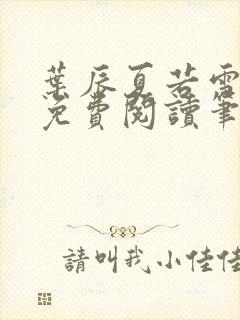 葉辰夏若雪
免費閱讀筆
請叫我小佳佳